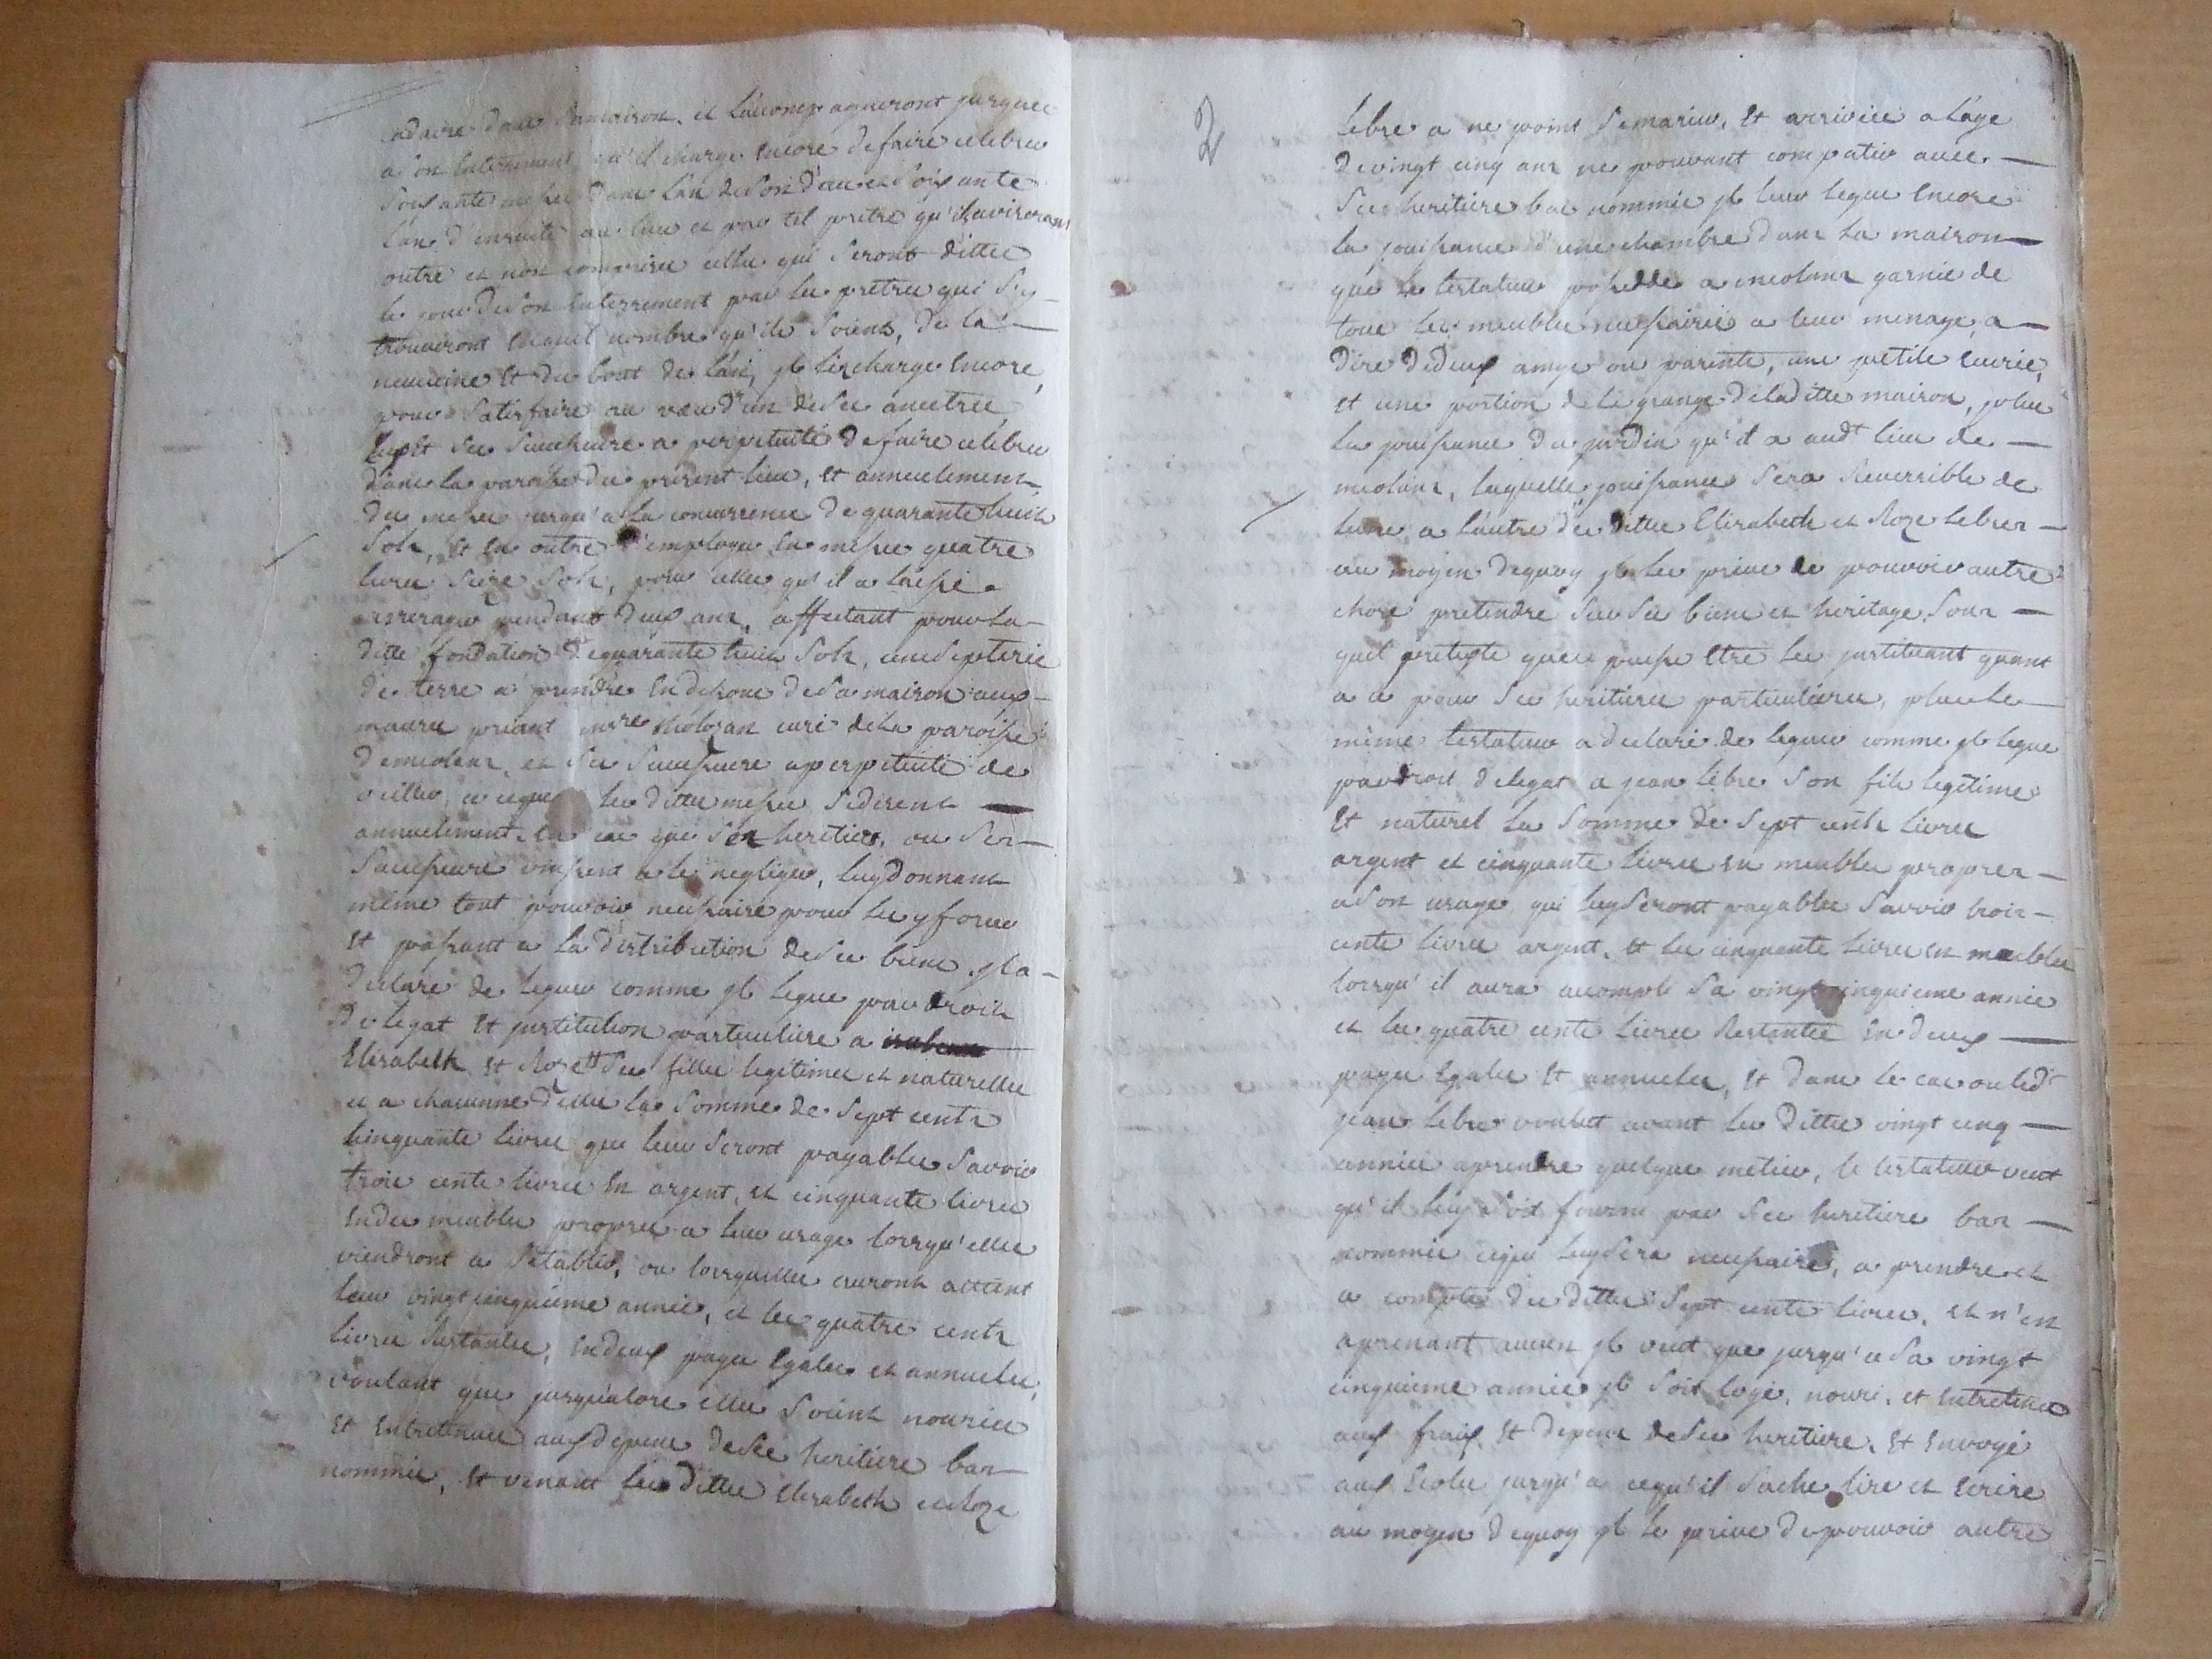 cadavre dans sa maison, et l'acompagneront jusques
a son enterrement, qu'il charge encore de faire celebrer
soixante messes dans l'an de son d'eces soixante
l'an d'ensuite au lieu et par tel pretre qu'ils aviseront
outre et non comprises celles qui seront dittes
le jour de son enterrement par les pretres qui s'y
trouveront en quel nombre qu'ils soient, de la
neuvaine et du bout de l'an, jl les charge encore,
pour satisfaire au vœu d'un de ses ancetres
luy et ses successeurs a perpetuité de faire celebrer
dans la paroisse du present lieu, et annuelement,
des messes jusqu'a la concurrence de quarante huit
sols, et en outre d'employer en messes quatre
livres seize sols, pour celles qu'il a laissé
arrerager pendant deux ans, affectant pour la
ditte fondation de quarante huit sols, une septerie
de terre a prendre en dessous de sa maison aux
maures priant mre curé de la paroisse
de meolans, et ses successeurs a perpetuité de
veiller a ce que les dittes messes se disent
annuelement, en cas que son heretier, ou ses
successeurs vinssent a le negliger, luy donnant
même tout pouvoir necessaire pour les y forcer
et passant a la distribution de ses biens jl a
declaré de leguer comme jl legue par droit
de legat et jnstitution particuliere a
Elisabeth et Roze ses filles legitimes et naturelles
et a chacunne d'elles la somme de sept cents
cinquante livres que leur seront payables savoir
trois cents livres en argent, et cinquante livres
en des meubles propres a leur usage lorsqu'elles
viendront a s'etablir, ou lorsquelles auront atteint
leur vingt cinquieme année, et les quatre cents
livres restantes, en deux payes egales et annueles,
voulant que jusqu'alors elles soient nouries
et entretenues aux depens de ses heritiers bas
nommés, et venant les dittes Elisabeth et Roze
2
lebre a ne point se marier, et arrivées a l'age
de vingt cinq ans ne pouvant compatir avec
ses heritiers bas nommés jl leur legue encore
la jouissance d'une chambre dans la maison
que le testateur possede a meolans garnie de
tous les meubles necessaires a leur menage, a
dire de deux amys ou parents, une petite ecurie,
et une portion de la grange de laditte maison, plus
la jouissance du jardin qu'il a audt lieu de
meolans, laquelle jouissance sera reversible de
l'une a l'autre des dittes Elisabeth et Roze lebres
au moyen de quoy jl les prive de pouvoir autre
chose pretendre sur ses biens et heritage sous
quel pretexte que ce puisse etre les jnstituant quant
a ce pour ses heritieres particulieres, plus le
même testateur a declaré de leguer comme jl legue
par droit de legat a jean lebre son fils legitime
et naturel la somme de sept cents livres
argent et cinquante livres en meubles propres
a son usage qui luy seront payables savoir trois
cents livres argent, et les cinquante livres en meubles
lorsqu'il aura acompli sa vingt cinquieme année
et les quatre cents livres restantes en deux
payes egales et annueles, et dans le cas ou ledt
jean lebre voulut avant les dittes vingt cinq
années aprendre quelque metier, le testateur veut
qu'il luy soit fourni par ses heritiers bas
nommés ce que luy sera necessaire, a prendre et
a compte des dittes sept cents livres, et n'en
aprenant aucun jl veut que jusqu'a sa vingt
cinquieme année jl soit logé, nouri, et entretenu
aux frais et depens de ses heritiers, et envoyé
aux ecoles jusqu'a ce qu'il sache lire et ecrire
au moyen de quoy jl le prive de pouvoir autre